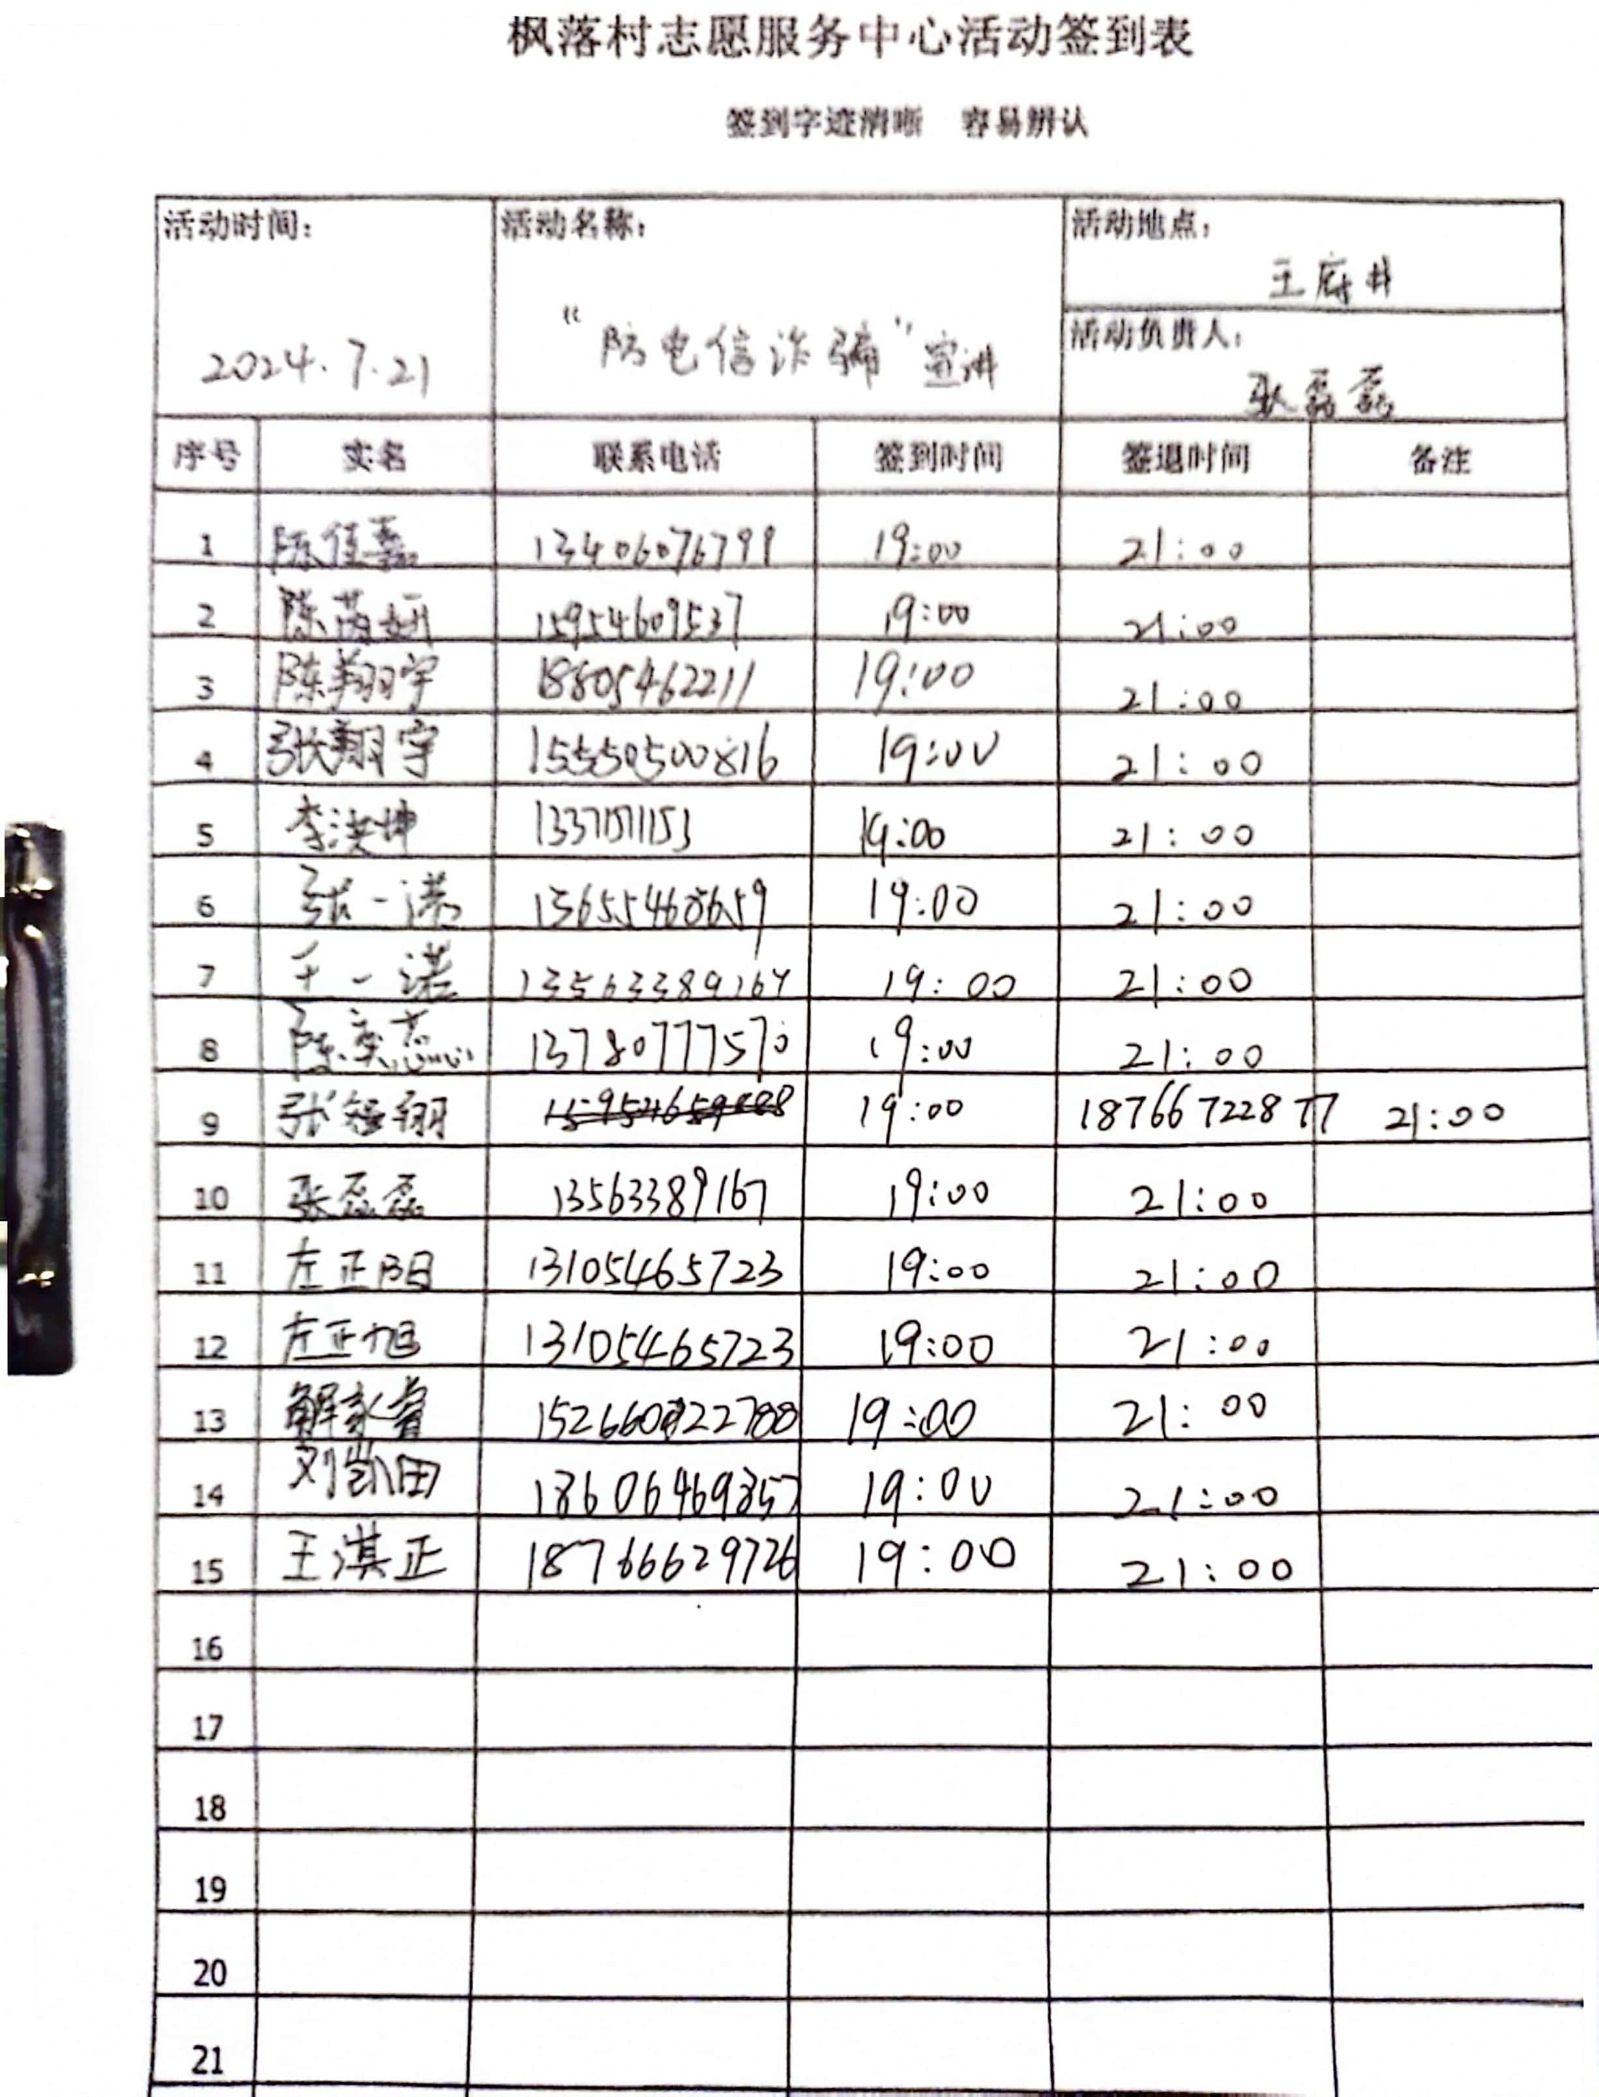 枫落村志愿服务中心活动签到表
签到字迹清晰 容易辨认
活动时间: 活动名称: 活动地点:
王府井
2024.7.21 “防电信诈骗”宣讲 活动负责人:
张磊磊
序号 实名 联系电话 签到时间 签退时间 备注
1 陈佳嘉 13406076799 19:00 21:00
2 陈茵妍 15954609537 19:00 21:00
3 陈翔宇 18805462211 19:00 21:00
4 张翔宇 15550500816 19:00 21:00
5 李洪坤 19:00 21:00
6 张一诺 13655468659 19:00 21:00
7 王一诺 13563389167 19:00 21:00
8 陈奕志 13780777570 19:00 21:00
9 张翔 19:00 18766722877 21:00
10 张磊磊 13563389167 19:00 21:00
11 左正阳 13105465723 19:00 21:00
12 左正旭 13105465723 19:00 21:00
13 解永睿 19:00 21:00
14 刘凯田 18606469357 19:00 21:00
15 王淇正 18766629726 19:00 21:00
16
17
18
19
20
21